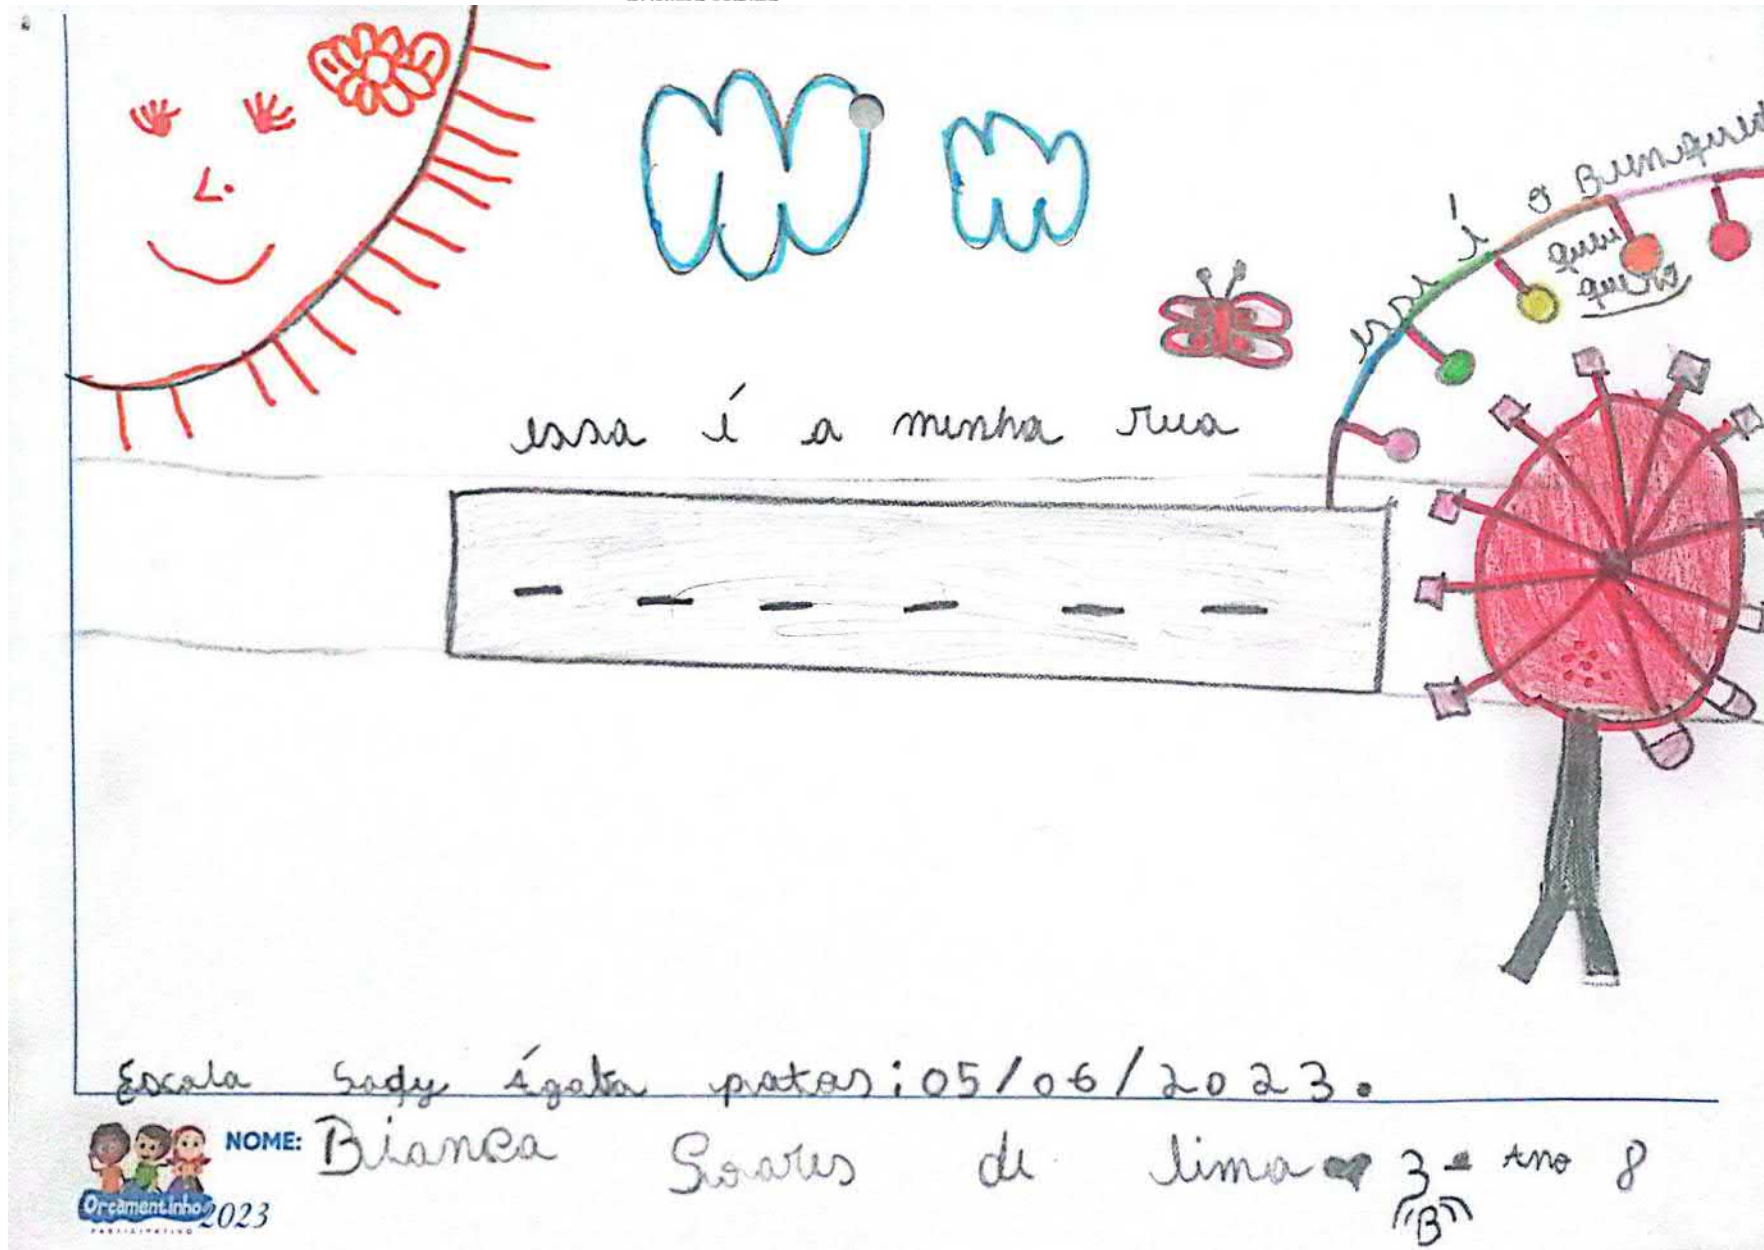 essa é o Brinqued
queeu
quero
essa é a minha rua
Escola Sady Ágata patos: 05/06/2023.
NOME: Bianca Soares de lima 3- Ano 8
"B"
Orçamentinho
PARTICIPATIVO
2023